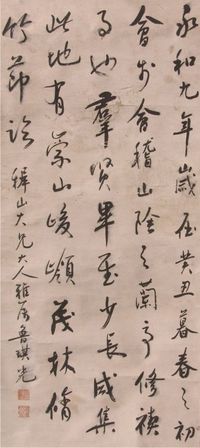 永和九年歲在癸丑暮春之初
會於會稽山陰之蘭亭修禊
事也羣賢畢至少長咸集
此地有崇山峻嶺茂林脩
竹節臨
穉山大兄大人雅屬魯琪光